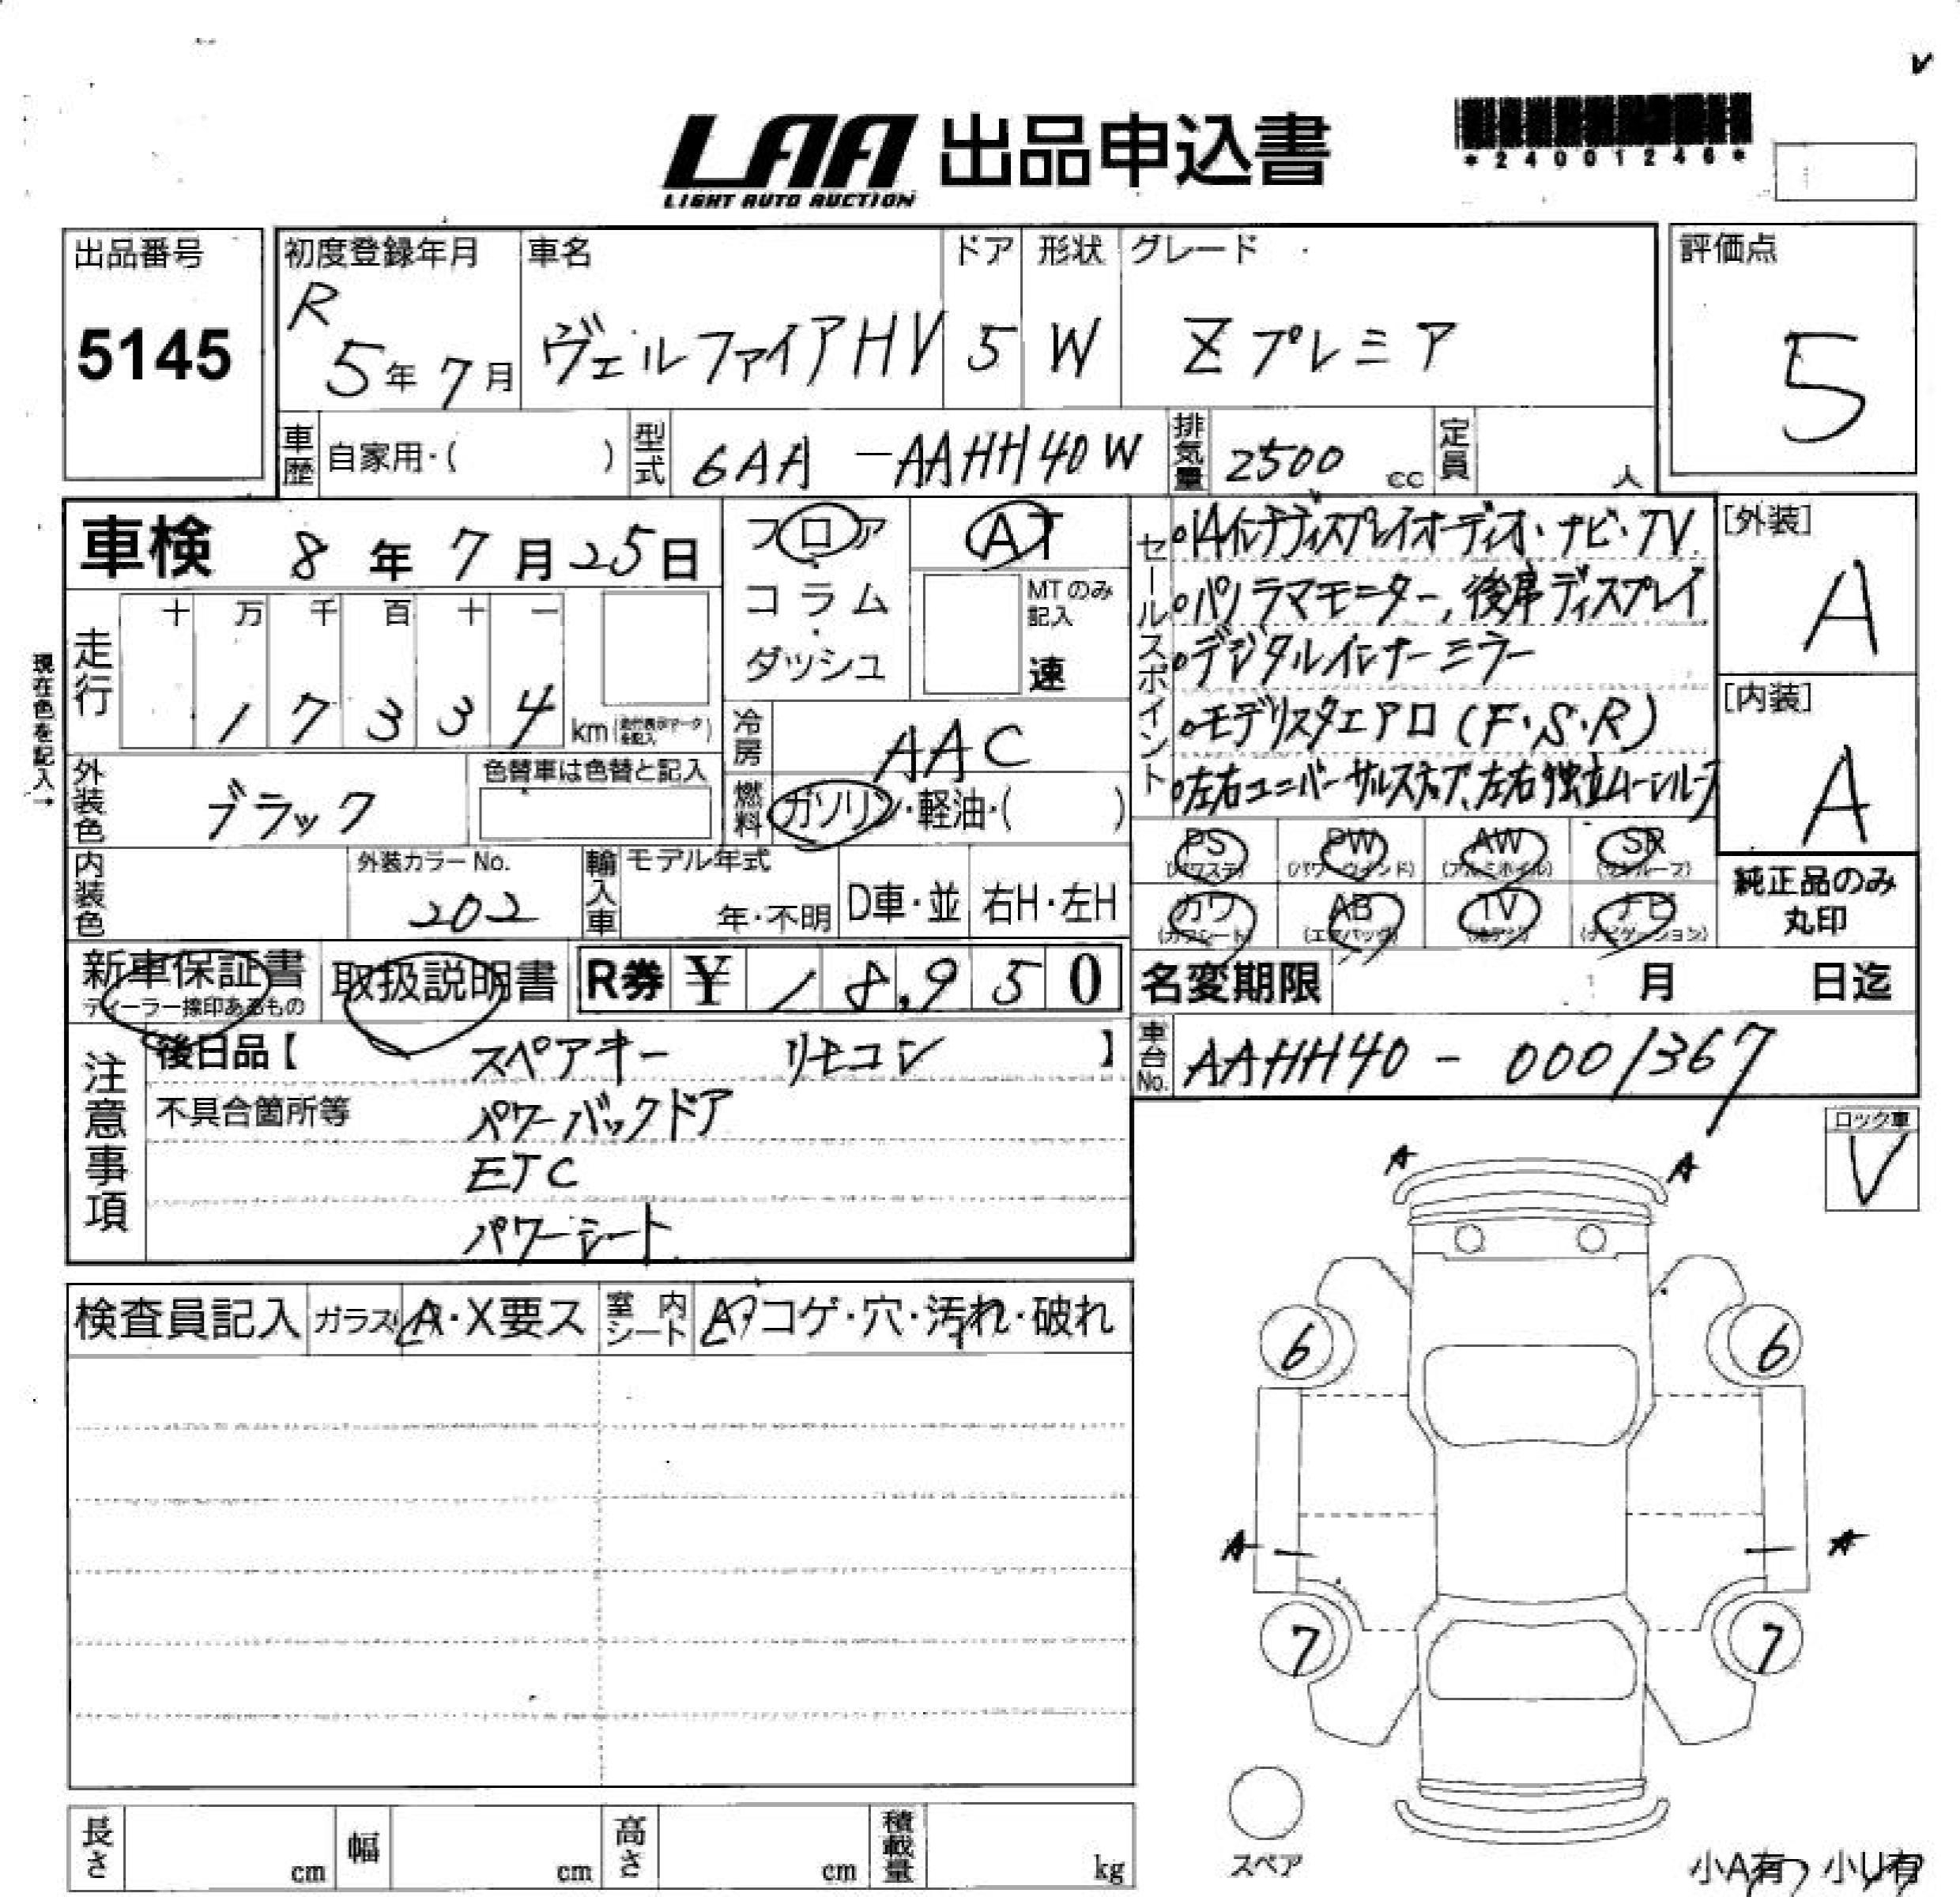 LAA 出品申込書
LIGHT AUTO AUCTION
*24001246*
出品番号
5145
初度登録年月
R
5年7月
車名
ヴェルファイアHV
ドア
5
形状
W
グレード
Zプレミア
評価点
5
車歴 自家用・( )
型式 6AA-AAHH40W
排気量 2500 cc
定員 人
車検 8年7月25日
フロア
・
コラム
・
ダッシュ
AT
MTのみ
記入
速
走行
十 万 千 百 十 一
1 7 3 3 4
km
現在色を記入→
冷房 AAC
燃料 ガソリン・軽油・( )
外装色 ブラック
色替車は色替と記入
内装色
外装カラーNo.
202
輸入車
モデル年式
年・不明
D車・並
右H・左H
セールスポイント
◦14インチディスプレイオーディオ・ナビ・TV
◦パノラマモニター、後席ディスプレイ
◦デジタルインナーミラー
◦モデリスタエアロ(F・S・R)
◦左右ユニバーサルステップ、左右独立ムーンルーフ
[外装]
A
[内装]
A
PS (パワステ)
PW (パワーウインド)
AW (アルミホイル)
SR (サンルーフ)
カワ (カワシート)
AB (エアバッグ)
TV (地デジ)
ナビ (ナビゲーション)
純正品のみ
丸印
新車保証書
ディーラー捺印あるもの
取扱説明書
R券 ¥ 18,950
名変期限 月 日迄
車台No. AAHH40-0001367
注意事項
後日品【 スペアキー リモコン 】
不具合箇所等 パワーバックドア
ETC
パワーシート
ロック車
V
検査員記入
ガラス A・X要ス
室内シート A・コゲ・穴・汚れ・破れ
A A
6 6
A A
7 7
スペア
長さ cm
幅 cm
高さ cm
積載量 kg
小A有 小U有